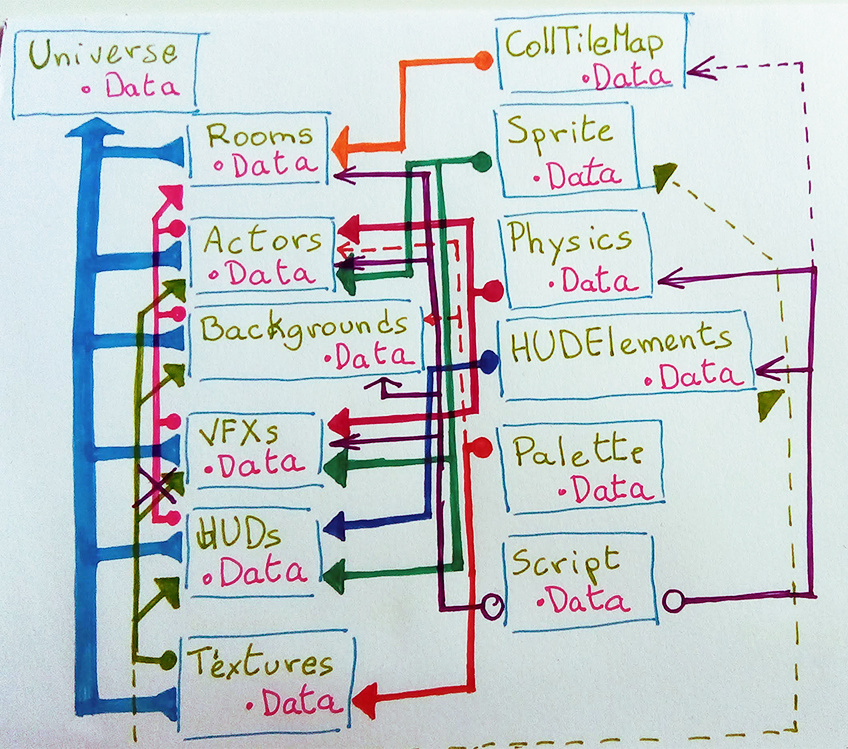 Universe
• Data
Rooms
• Data
Actors
• Data
Backgrounds
• Data
VFXs
• Data
HUDs
• Data
Textures
• Data
CollTileMap
• Data
Sprite
• Data
Physics
• Data
HUDElements
• Data
Palette
• Data
Script
• Data